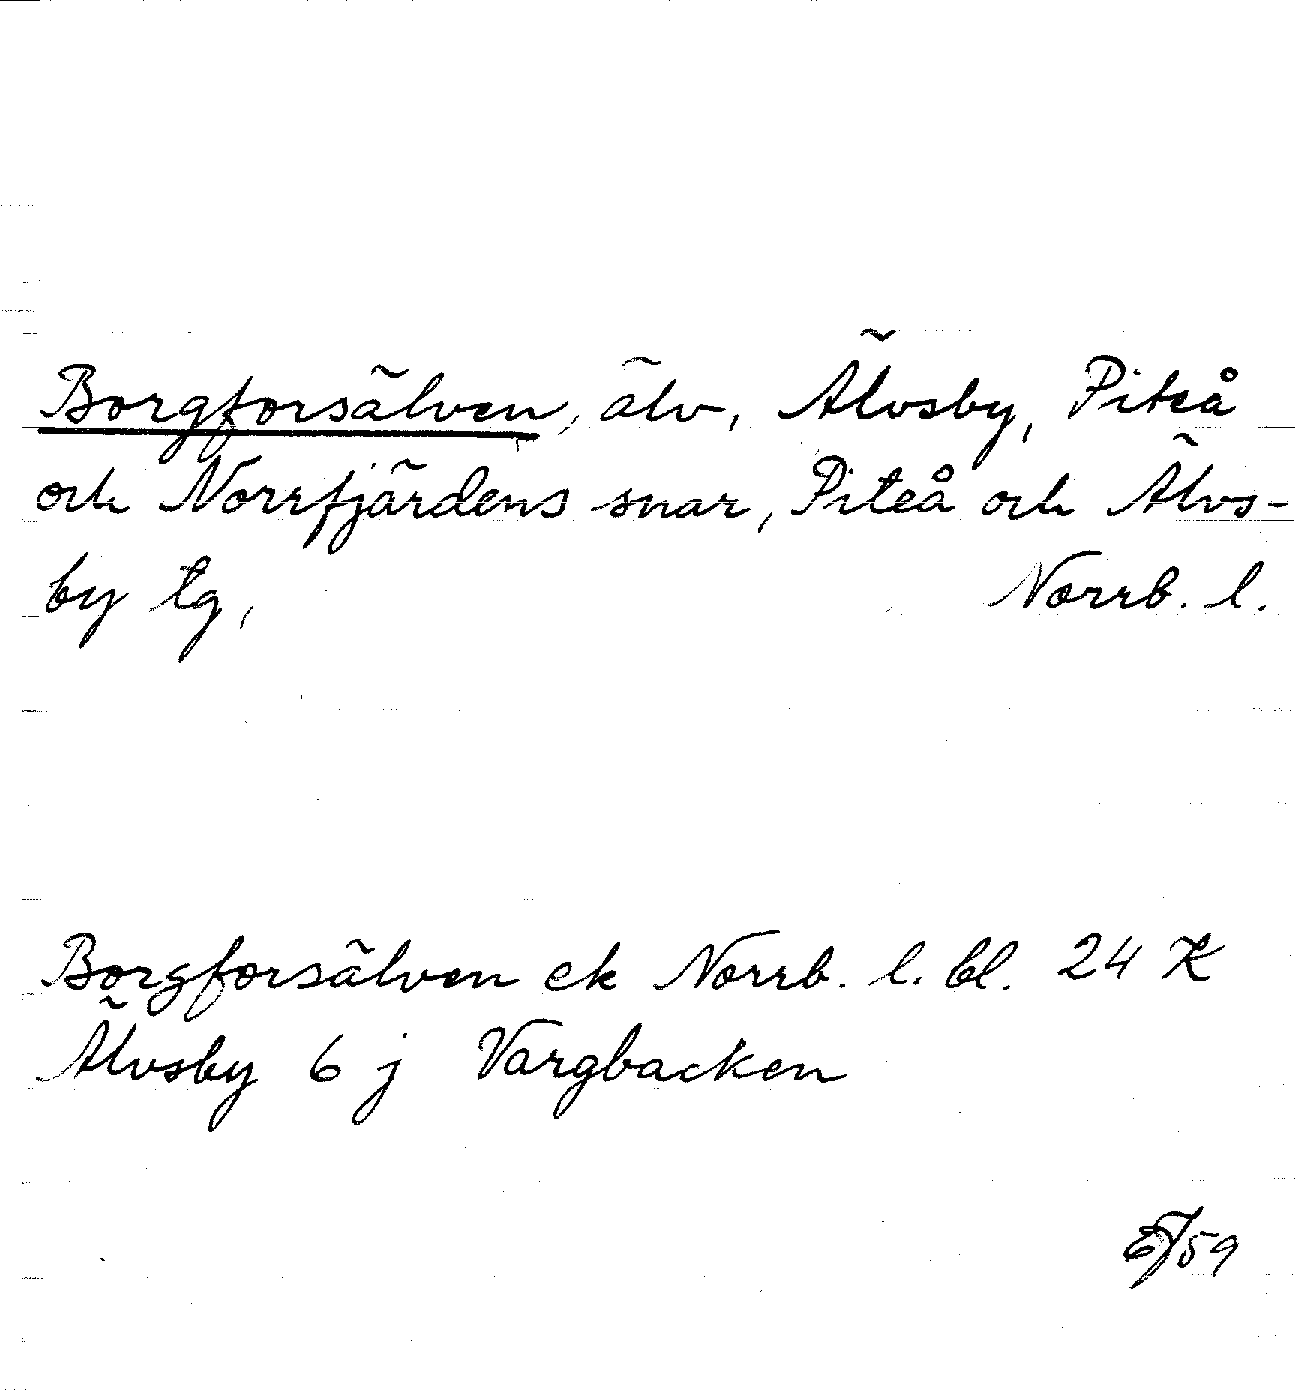 Borgforsälven, älv, Älvsby, Piteå
och Norrfjärdens snar, Piteå och Älvs-
by tg, Norrb. l.
Borgforsälven ek Norrb. l. bl. 24 K
Älvsby 6 j Vargbacken